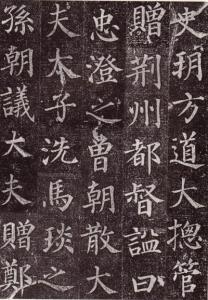 史朔方道大摠管
贈荊州都督諡曰
忠澄之曾朝散大
夫太子洗馬琰之
孫朝議大夫贈鄭